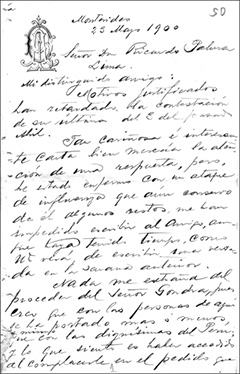 50
Montevideo
23 Mayo 1900
Señor Dn Ricardo Palma
Lima.
Mi distinguido amigo:
Motivos justificados
han retardado la contestación
de su última del 2 del pasado
Abril.
Tan cariñosa é interesan
te carta bien merecia la aten
ción de una respuesta, pero,
he estado enfermo con un ataque
de influenza que aún conservo
de él algunos restos, me han
impedido escribir al amigo, aun
que haya tenido tiempo, como
de escribir
da en la semana anterior.
Nada me estraña del
proceder del Señor Gondra, pues
creo que con las personas de aquí
se ha portado mas ó menos
que con las dignísimas del Perú,
y lo que siento es haber accedido
al complacerle en el pedido que